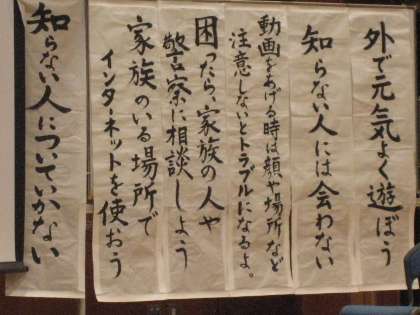 外で元気よく遊ぼう
知らない人には会わない
動画をあげる時は顔や場所など
注意しないとトラブルになるよ。
困ったら、家族の人や
警察に相談しよう
家族のいる場所で
インターネットを使おう
知らない人についていかない